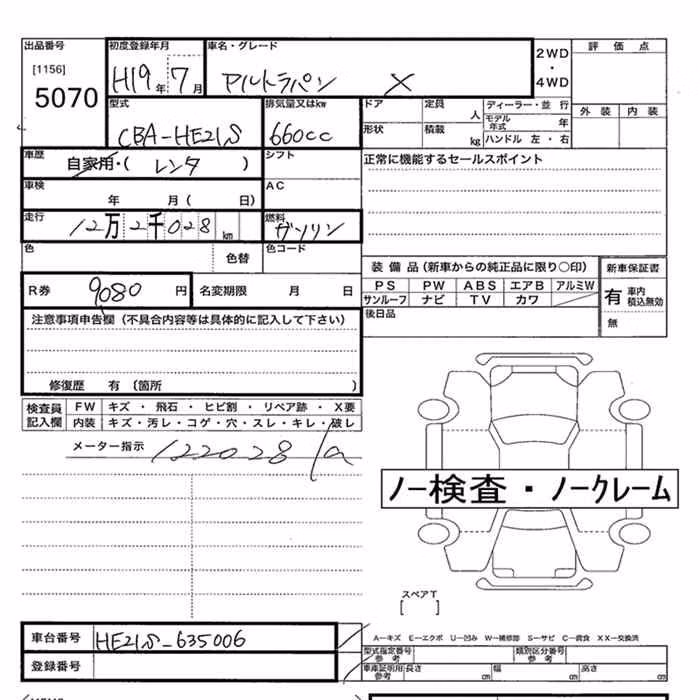 出品番号 初度登録年月 車名・グレード 2WD・4WD 評価点
[1156] 5070 H19年 7月 アルトラパン X
型式 排気量又はkw ドア 定員 人 ディーラー・並 行 外装 内装
CBA-HE21S 660cc 形状 積載 kg モデル年式 年 ハンドル 左・右
車歴 自家用・( レンタ ) シフト 正常に機能するセールスポイント
車検 年 月( 日) AC
走行 12万2千028km 燃料 ガソリン
色 色替 色コード
装備品(新車からの純正品に限り○印) 新車保証書
R券 9080円 名変期限 月 日 PS PW ABS エアB アルミW 有 車内積込無効
サンルーフ ナビ TV カワ
注意事項申告欄(不具合内容等は具体的に記入して下さい) 後日品 無
修復歴 有 〔箇所 〕
検査員記入欄 FW キズ・飛石・ヒビ割・リペア跡・X要
内装 キズ・汚レ・コゲ・穴・スレ・キレ・破レ
メーター指示 122028
ノー検査・ノークレーム
スペアT
[ ]
車台番号 HE21S-635006
A−キズ E−エクボ U−凹み W−補修跡 S−サビ C−腐食 XX−交換済
型式指定番号 参考 類別区分番号 参考
登録番号 車庫証明用 参考 長さ cm 幅 cm 高さ cm